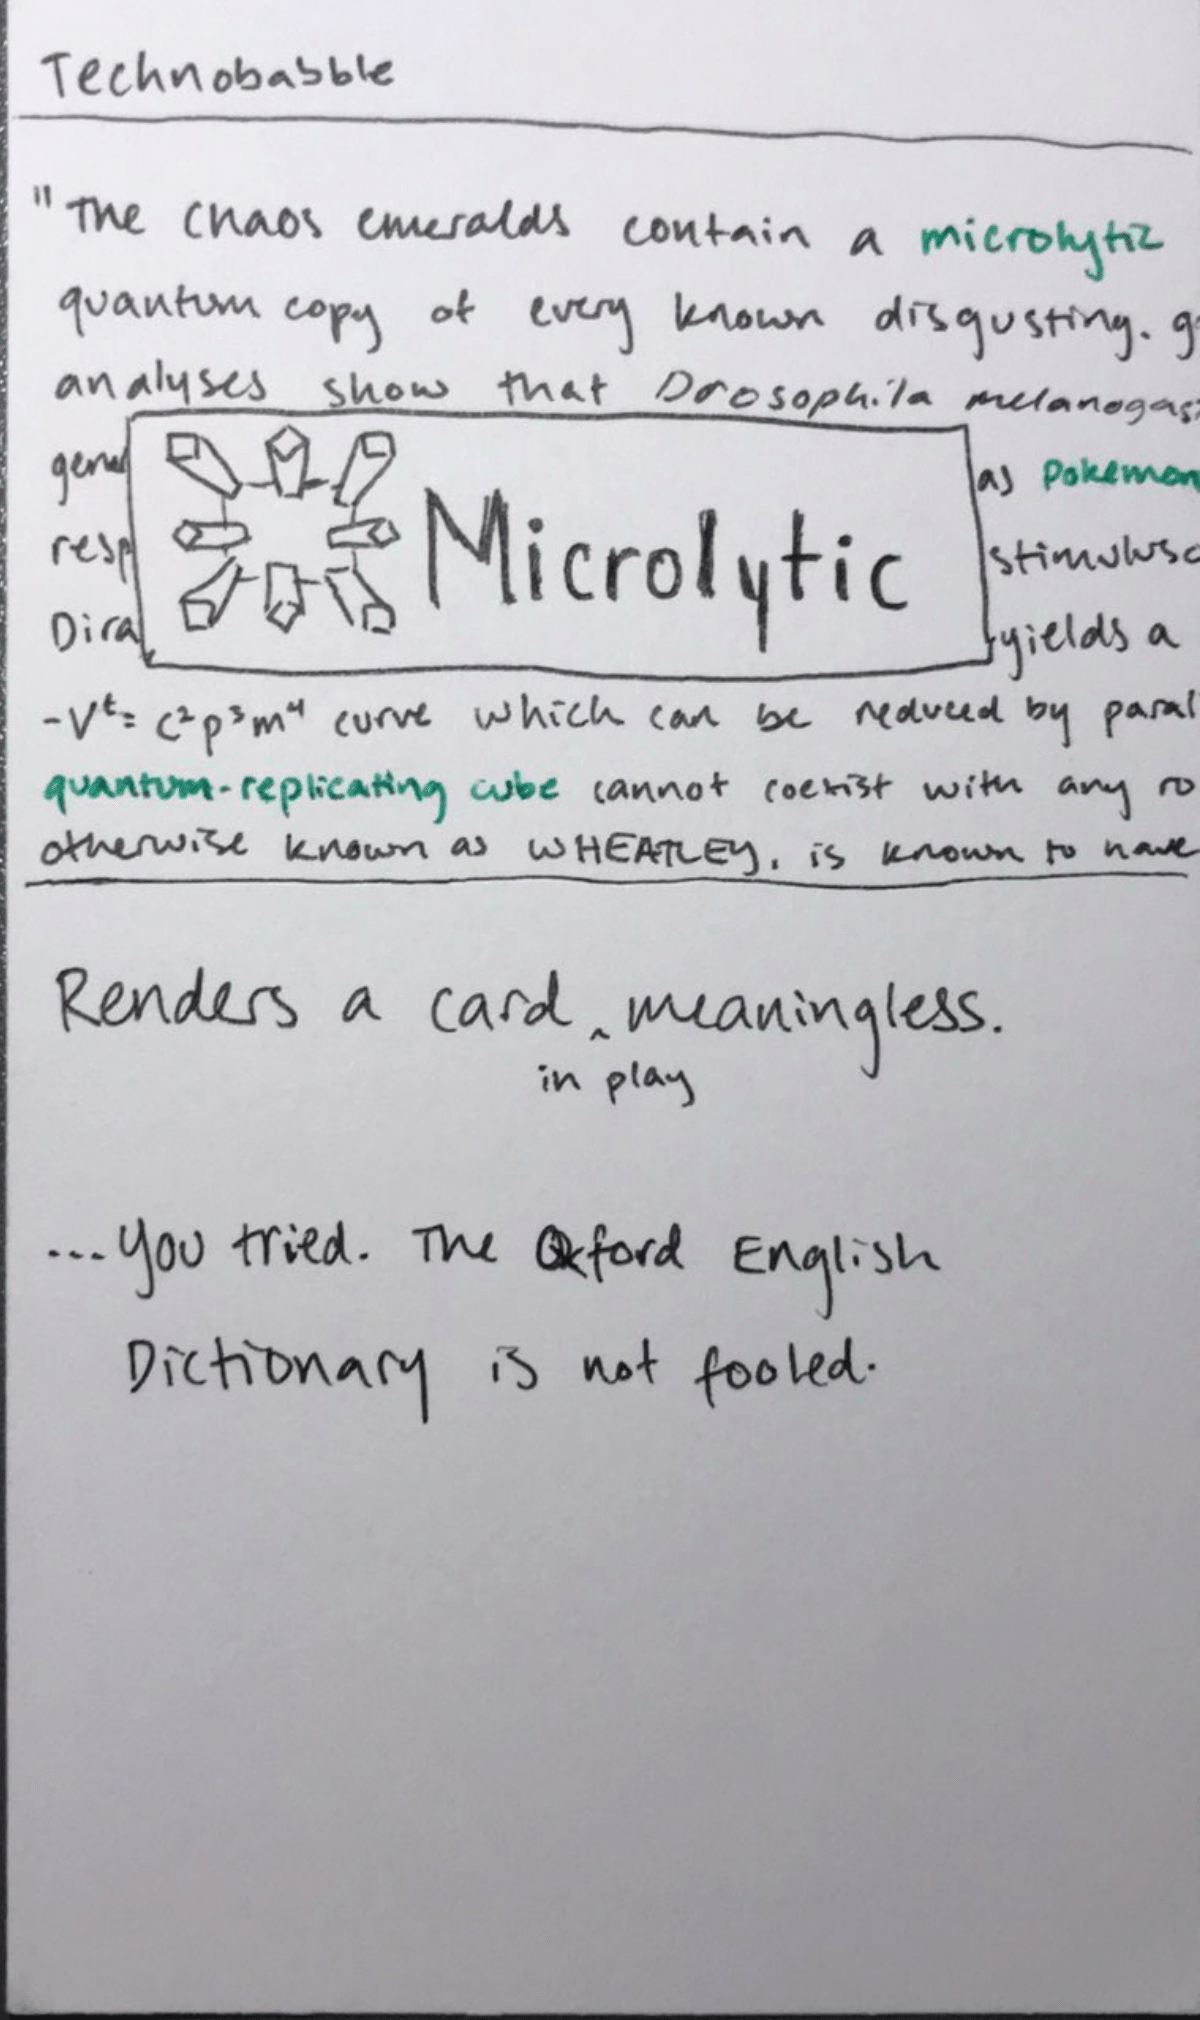 Technobabble
"The chaos emeralds contain a microlytic
quantum copy of every known disgusting. g
analyses show that Drosophila melanogas
gene as pokemon
resp stimulusc
Microlytic
Dira yields a
-Vᵗ= c²p³m⁴ curve which can be reduced by paral
quantum-replicating cube cannot coexist with any ro
otherwise known as WHEATLEY, is known to have
Renders a card ^ meaningless.
in play
...You tried. The Oxford English
Dictionary is not fooled.